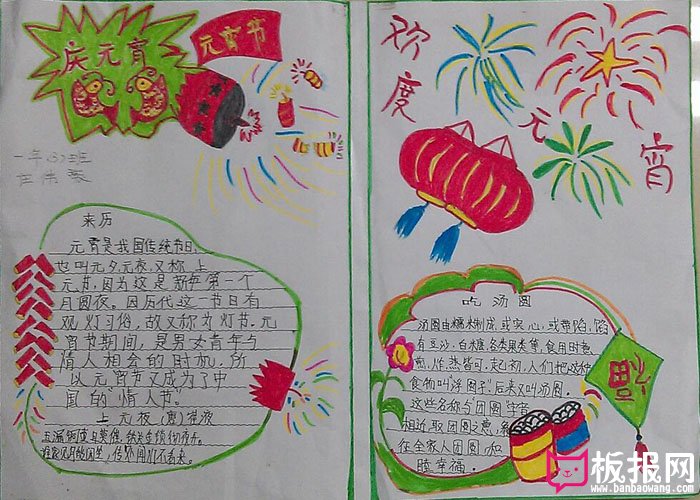 庆元宵
元宵节
一年(3)班
来历
元宵是我国传统节日,
也叫元夕、元夜,又称上
元节,因为这是新年第一个
月圆夜。因历代这一节日有
观灯习俗,故又称为灯节。元
宵节期间,是男女青年与
情人相会的时机,所
以元宵节又成为了中
国的“情人节。”
上元夜(唐)崔液
欢度
元
宵
吃汤圆
汤圆由糯米制成,或实心,或带馅,馅
有豆沙、白糖、各类果类等,食用时煮、
煎、炸、蒸皆可,起初,人们把这种
食物叫“浮圆子”后来又叫汤圆,
这些名称与“团圆”字音
相近,取团圆之意,
在全家人团圆,和
睦幸福。
福
板报网
www.banbaowang.com